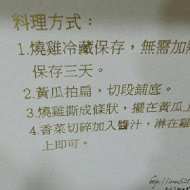 料理方式：
1.燒雞冷藏保存，無需加
保存三天。
2.黃瓜拍扁，切段鋪底。
3.燒雞撕成條狀，擺在黃瓜
4.香菜切碎加入醬汁，淋在雞
上即可。